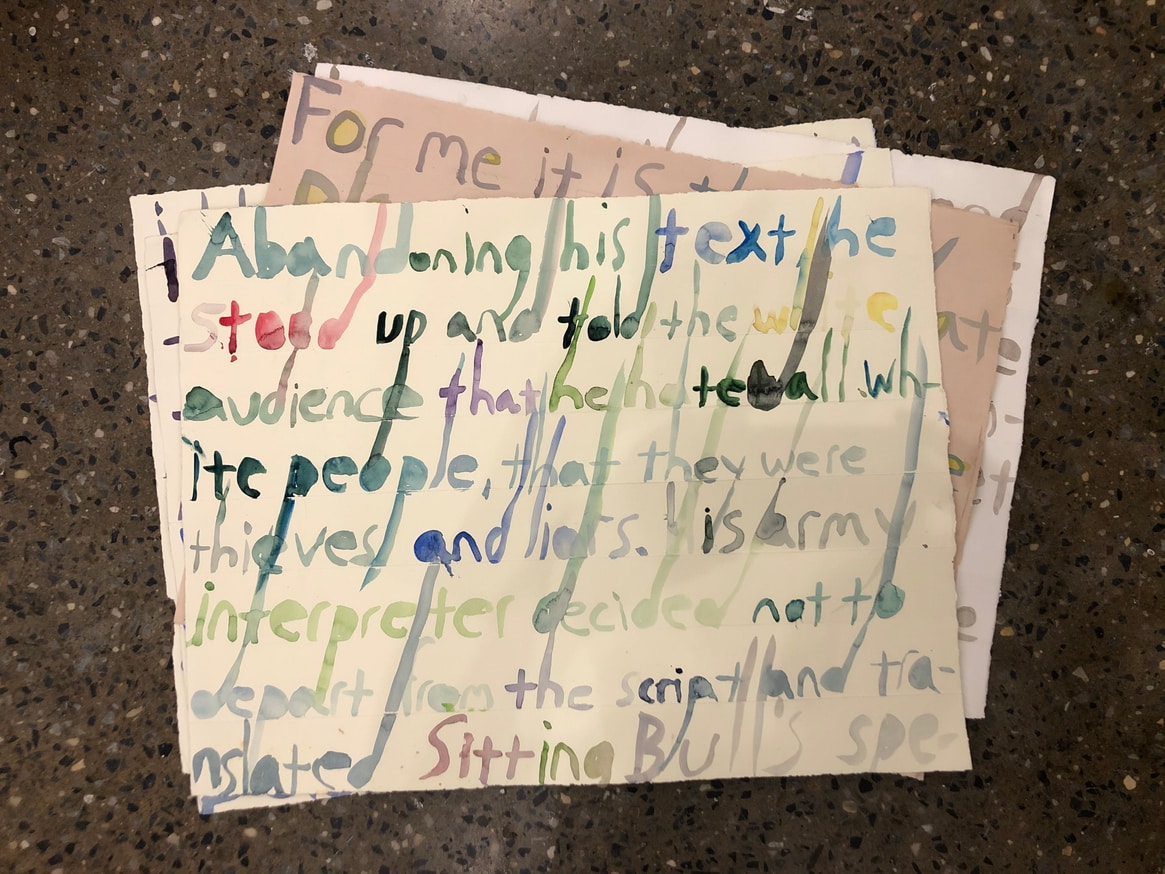 For me it is
Abandoning his text, he
stood up and told the white
audience that he hated all wh-
ite people, that they were
thieves and liars. His army
interpreter decided not to
depart from the script and tra-
nslated Sitting Bull's spe-